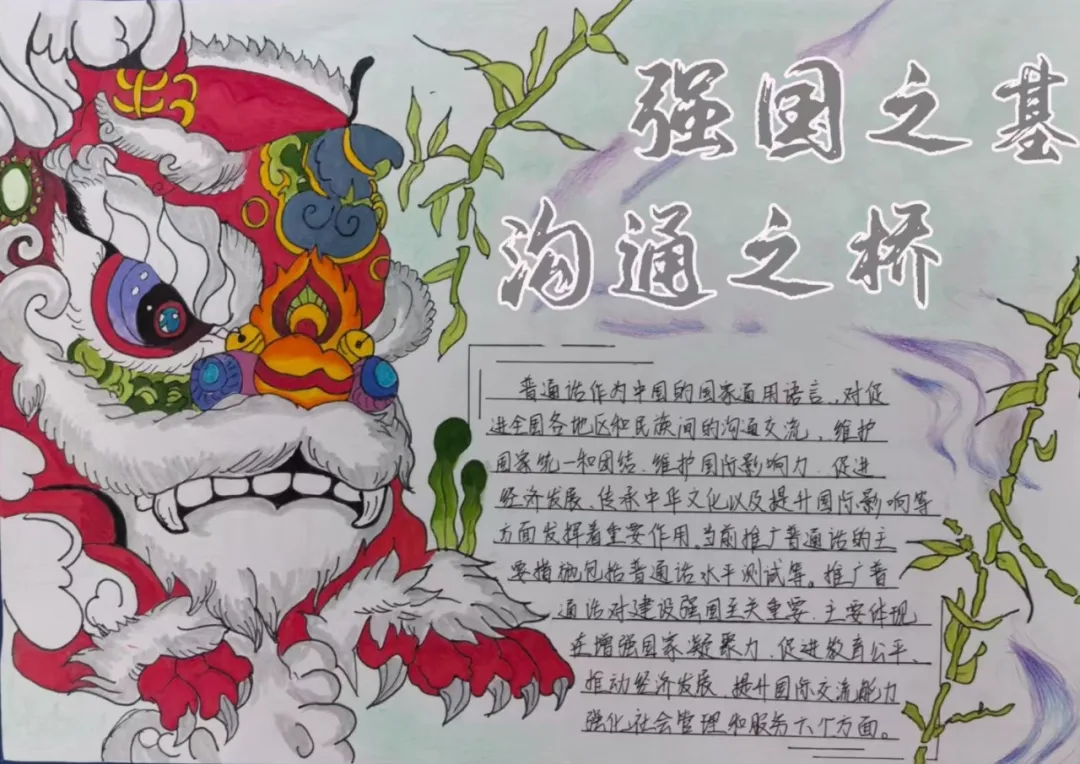 强国之基
沟通之桥
普通话作为中国的国家通用语言,对促
进全国各地区和民族间的沟通交流、维护
国家统一和团结、维护国际影响力、促进
经济发展、传承中华文化以及提升国际影响等
方面发挥着重要作用。当前推广普通话的主
要措施包括普通话水平测试等。推广普
通话对建设强国至关重要、主要体现
在增强国家凝聚力、促进教育公平、
推动经济发展、提升国际交流能力
强化社会管理和服务六个方面。